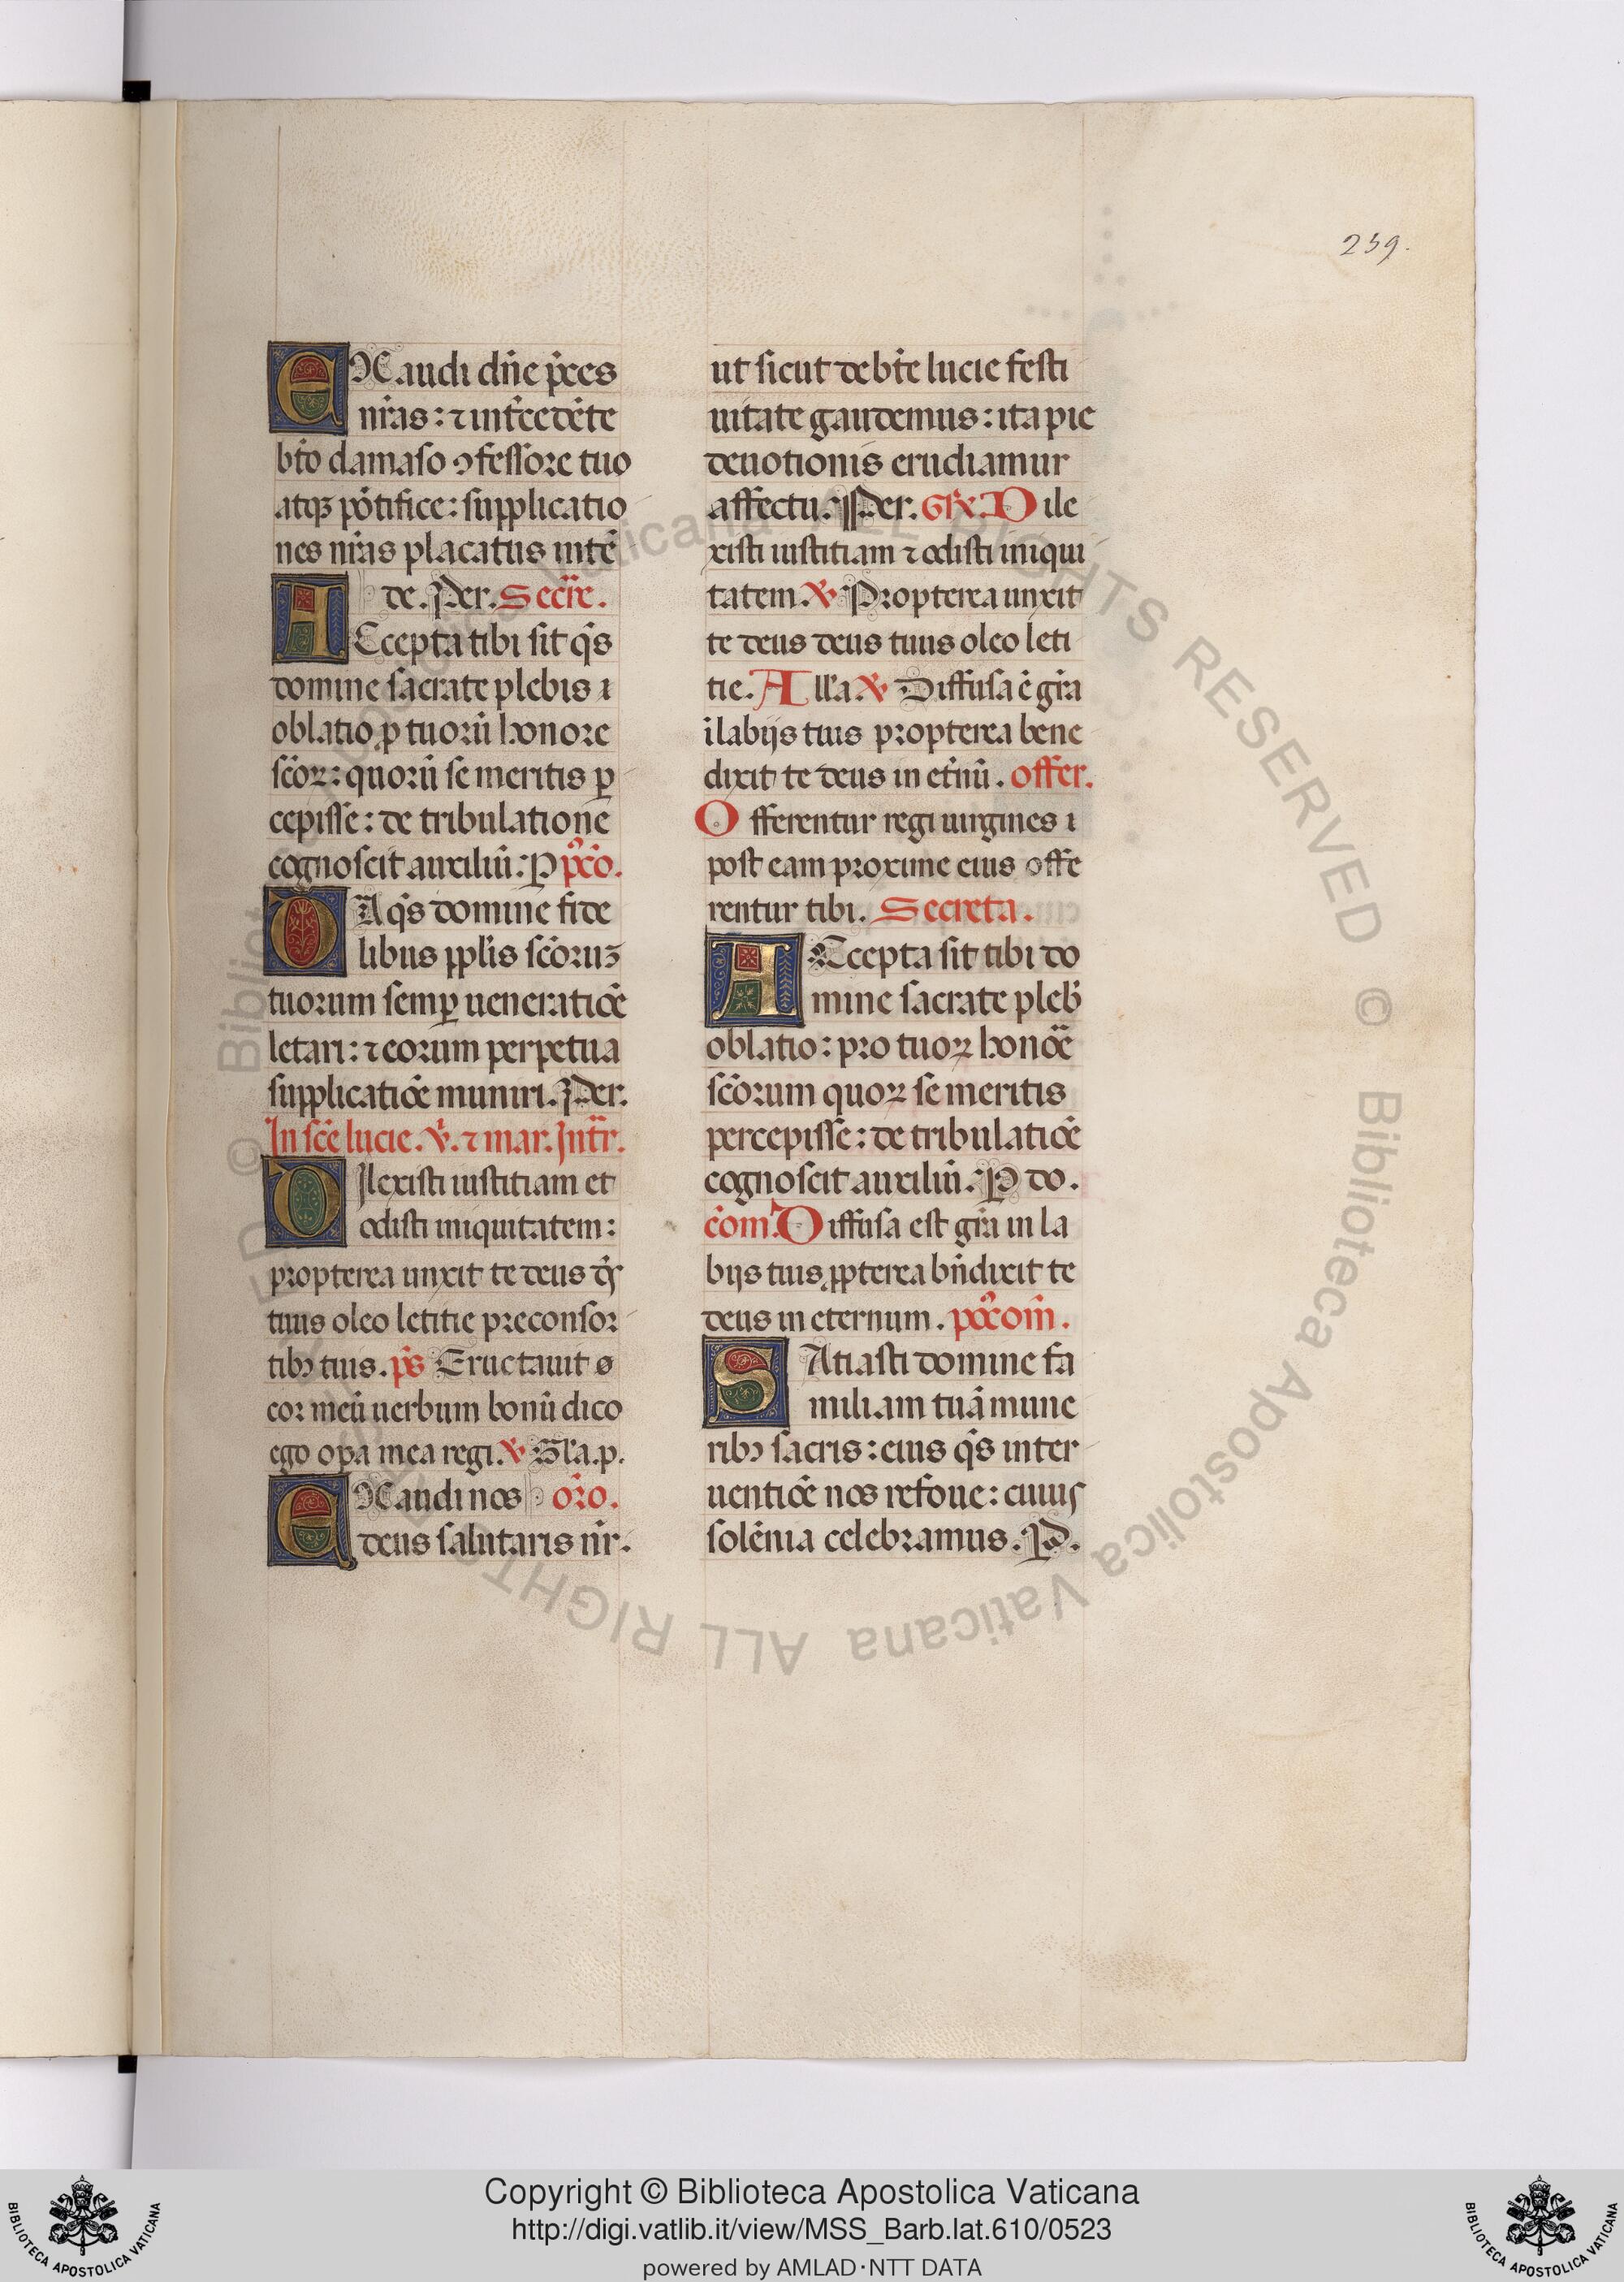 259.
EXaudi dñe p̃ces
nr̃as: ⁊ int̃cedẽte
bt̃o damaso ꝯfessore tuo
atqꝫ põtifice: supplicatio
nes nr̃as placatus intẽ
de. Per. Secr̃e.
ACcepta tibi sit q̃s
domine sacrate plebis ı
oblatio ꝓ tuorũ honore
sc̃oꝝ: quorũ se meritis ꝑ
cepisse: de tribulatione
cognoscit auxiliũ: P pꝰc̃o.
DA q̃s domine fide
libus pplĩs sc̃oruꝫ
tuorum semꝑ ueneratiõe
letari: ⁊ eorum perpetua
supplicatiõe muniri. Per.
In sc̃e lucie. v̾. ⁊ mar. Intr̃.
DIlexisti iustitiam et
odisti iniquitatem:
propterea unxit te deus dꝰs
tuus oleo letitie preconsor
tibꝫ tuis. p̃s Eructauit ø
cor meũ uerbum bonũ dico
ego oꝑa mea regi. ℣ Gl̃a. p.
EXaudi nos or̃o.
deus salutaris nr̃.
ut sicut de bt̃e lucie festi
uitate gaudemus: ita pie
deuotionis erudiamur
affectu. Per. GR̃. Dile
xisti iustitiam ⁊ odisti iniqui
tatem. ℣ Propterea unxit
te deus deus tuus oleo leti
tie. All̃a ℣ Diffusa ẽ gr̃a
ĩ labijs tuis propterea bene
dixit te deus in et̃nũ. offer.
Offerentur regi uirgines ı
post eam proxime eius offe
rentur tibi. Secreta.
ACcepta sit tibi do
mine sacrate pleb̃
oblatio: pro tuoꝝ honõe
sc̃orum quoꝝ se meritis
percepisse: de tribulatiõe
cognoscit auxiliũ. P do.
c̃om. Diffusa est gr̃a in la
bijs tuis ꝓpterea bñdixit te
deus in eternum. pꝰcom̃.
SAtiasti domine fa
miliam tuã mune
ribꝫ sacris: eius q̃s inter
uentiõe nos refoue: cuius
solẽnia celebramus. P.
© Biblioteca Apostolica Vaticana ALL RIGHTS RESERVED © Biblioteca Apostolica Vaticana ALL RIGHTS RESERVED
BIBLIOTECA APOSTOLICA VATICANA
Copyright © Biblioteca Apostolica Vaticana
http://digi.vatlib.it/view/MSS_Barb.lat.610/0523
powered by AMLAD·NTT DATA
BIBLIOTECA APOSTOLICA VATICANA